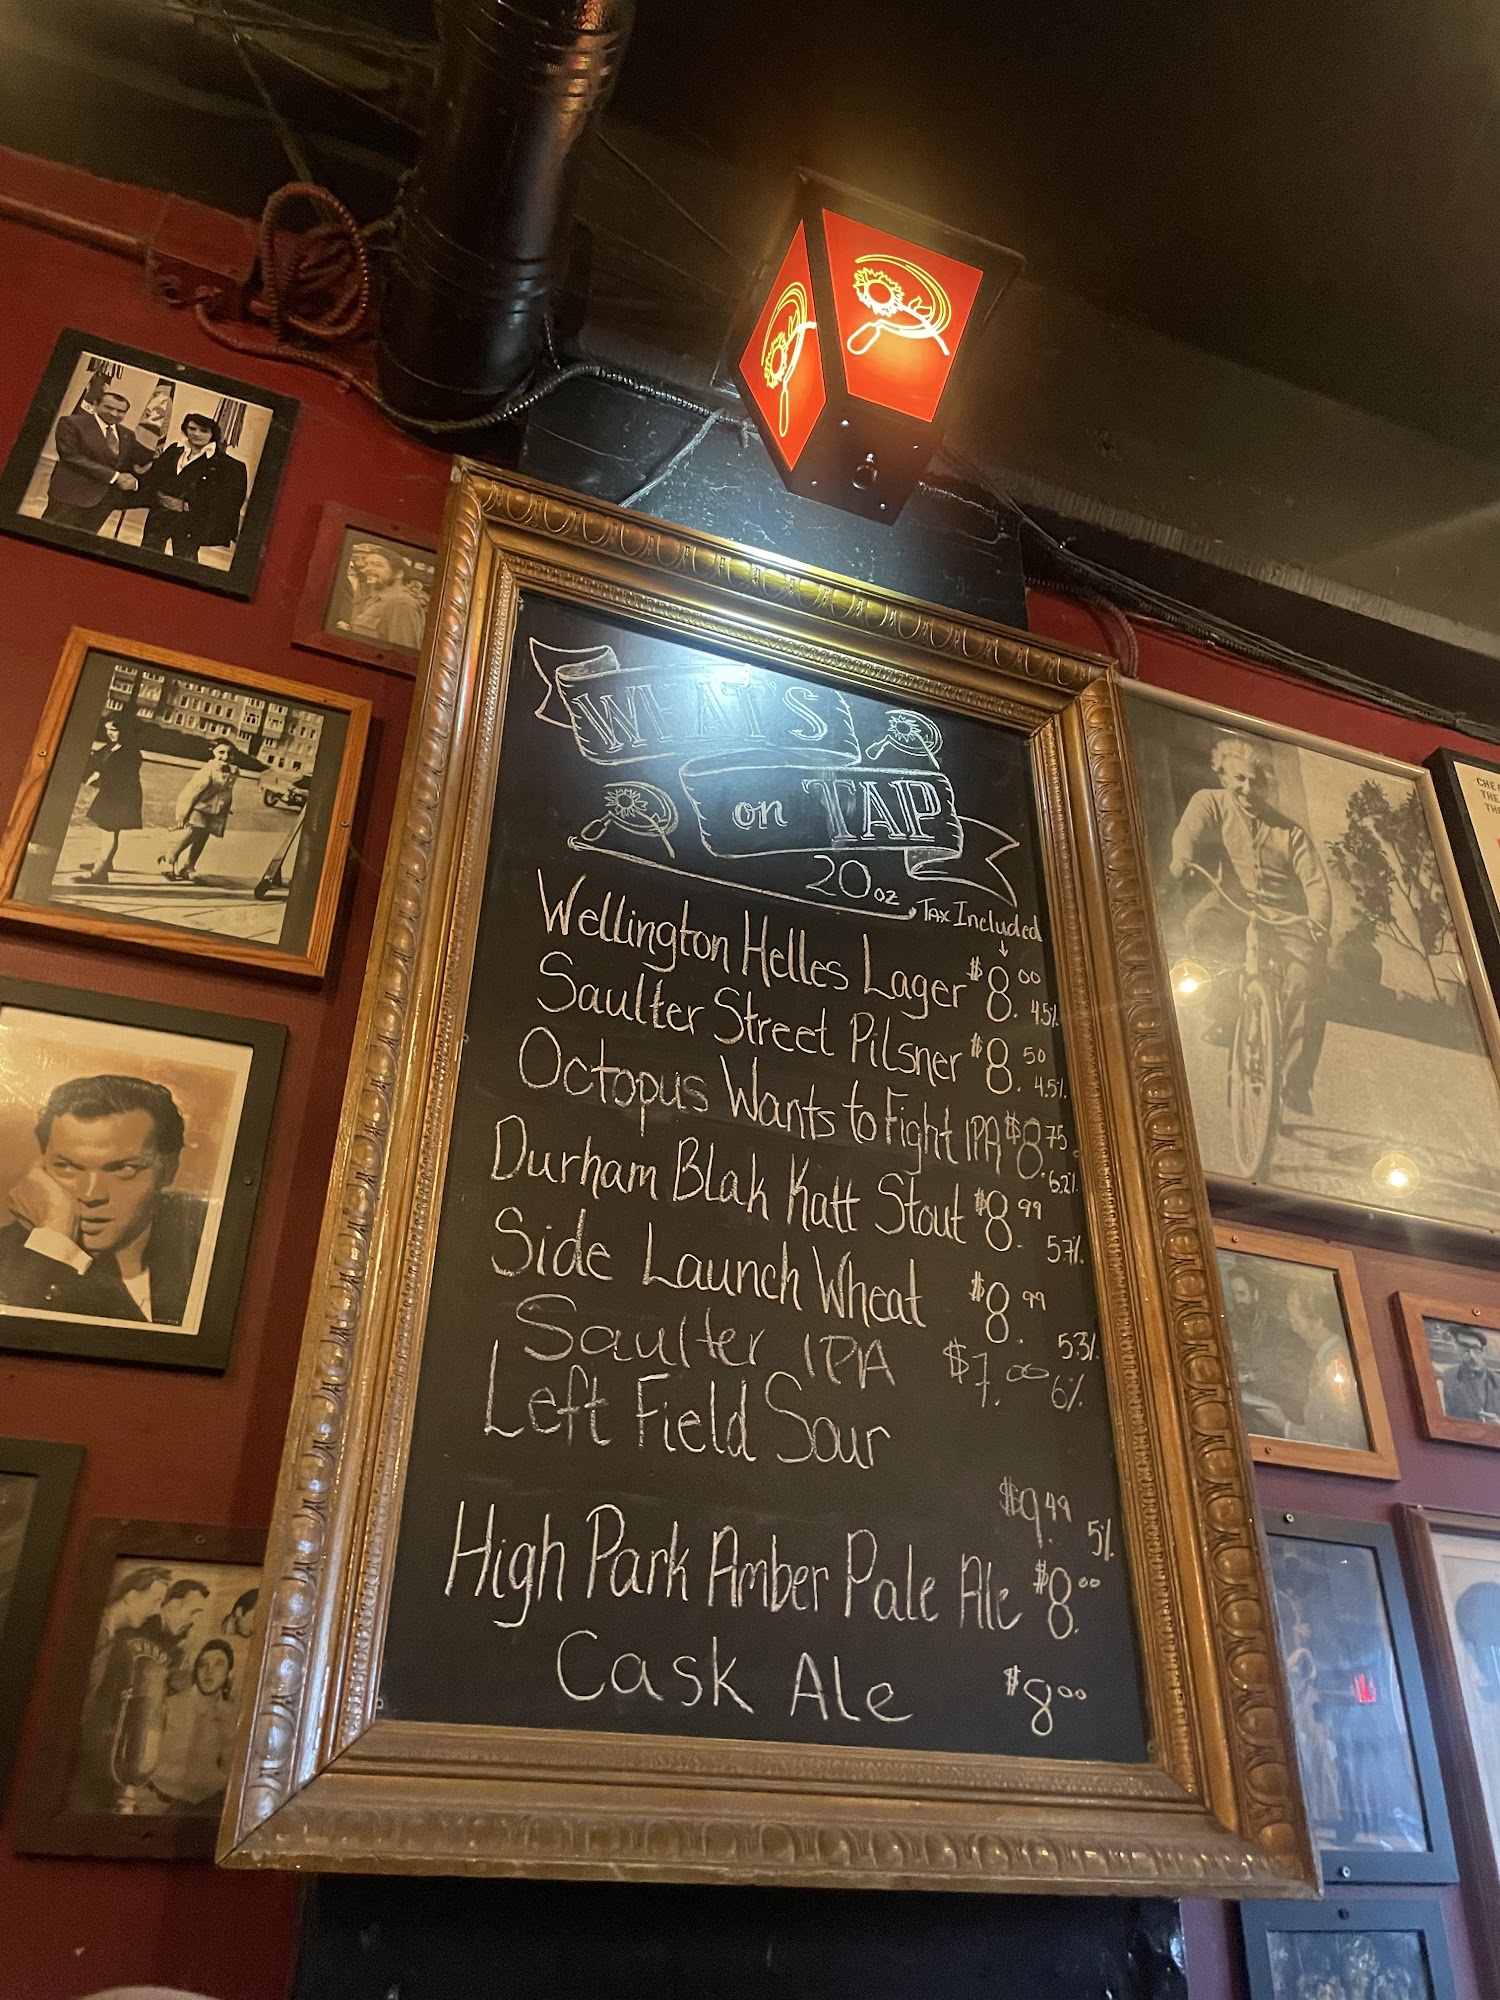 WHAT'S
on TAP
20oz Tax Included
Wellington Helles Lager $8.00 4.5%
Saulter Street Pilsner $8.50 4.5%
Octopus Wants to Fight IPA $8.75 6.2%
Durham Blak Katt Stout $8.99 5.7%
Side Launch Wheat $8.99 5.3%
Saulter IPA $7.00 6%
Left Field Sour
$9.49 5%
High Park Amber Pale Ale $8.00
Cask Ale $8.00